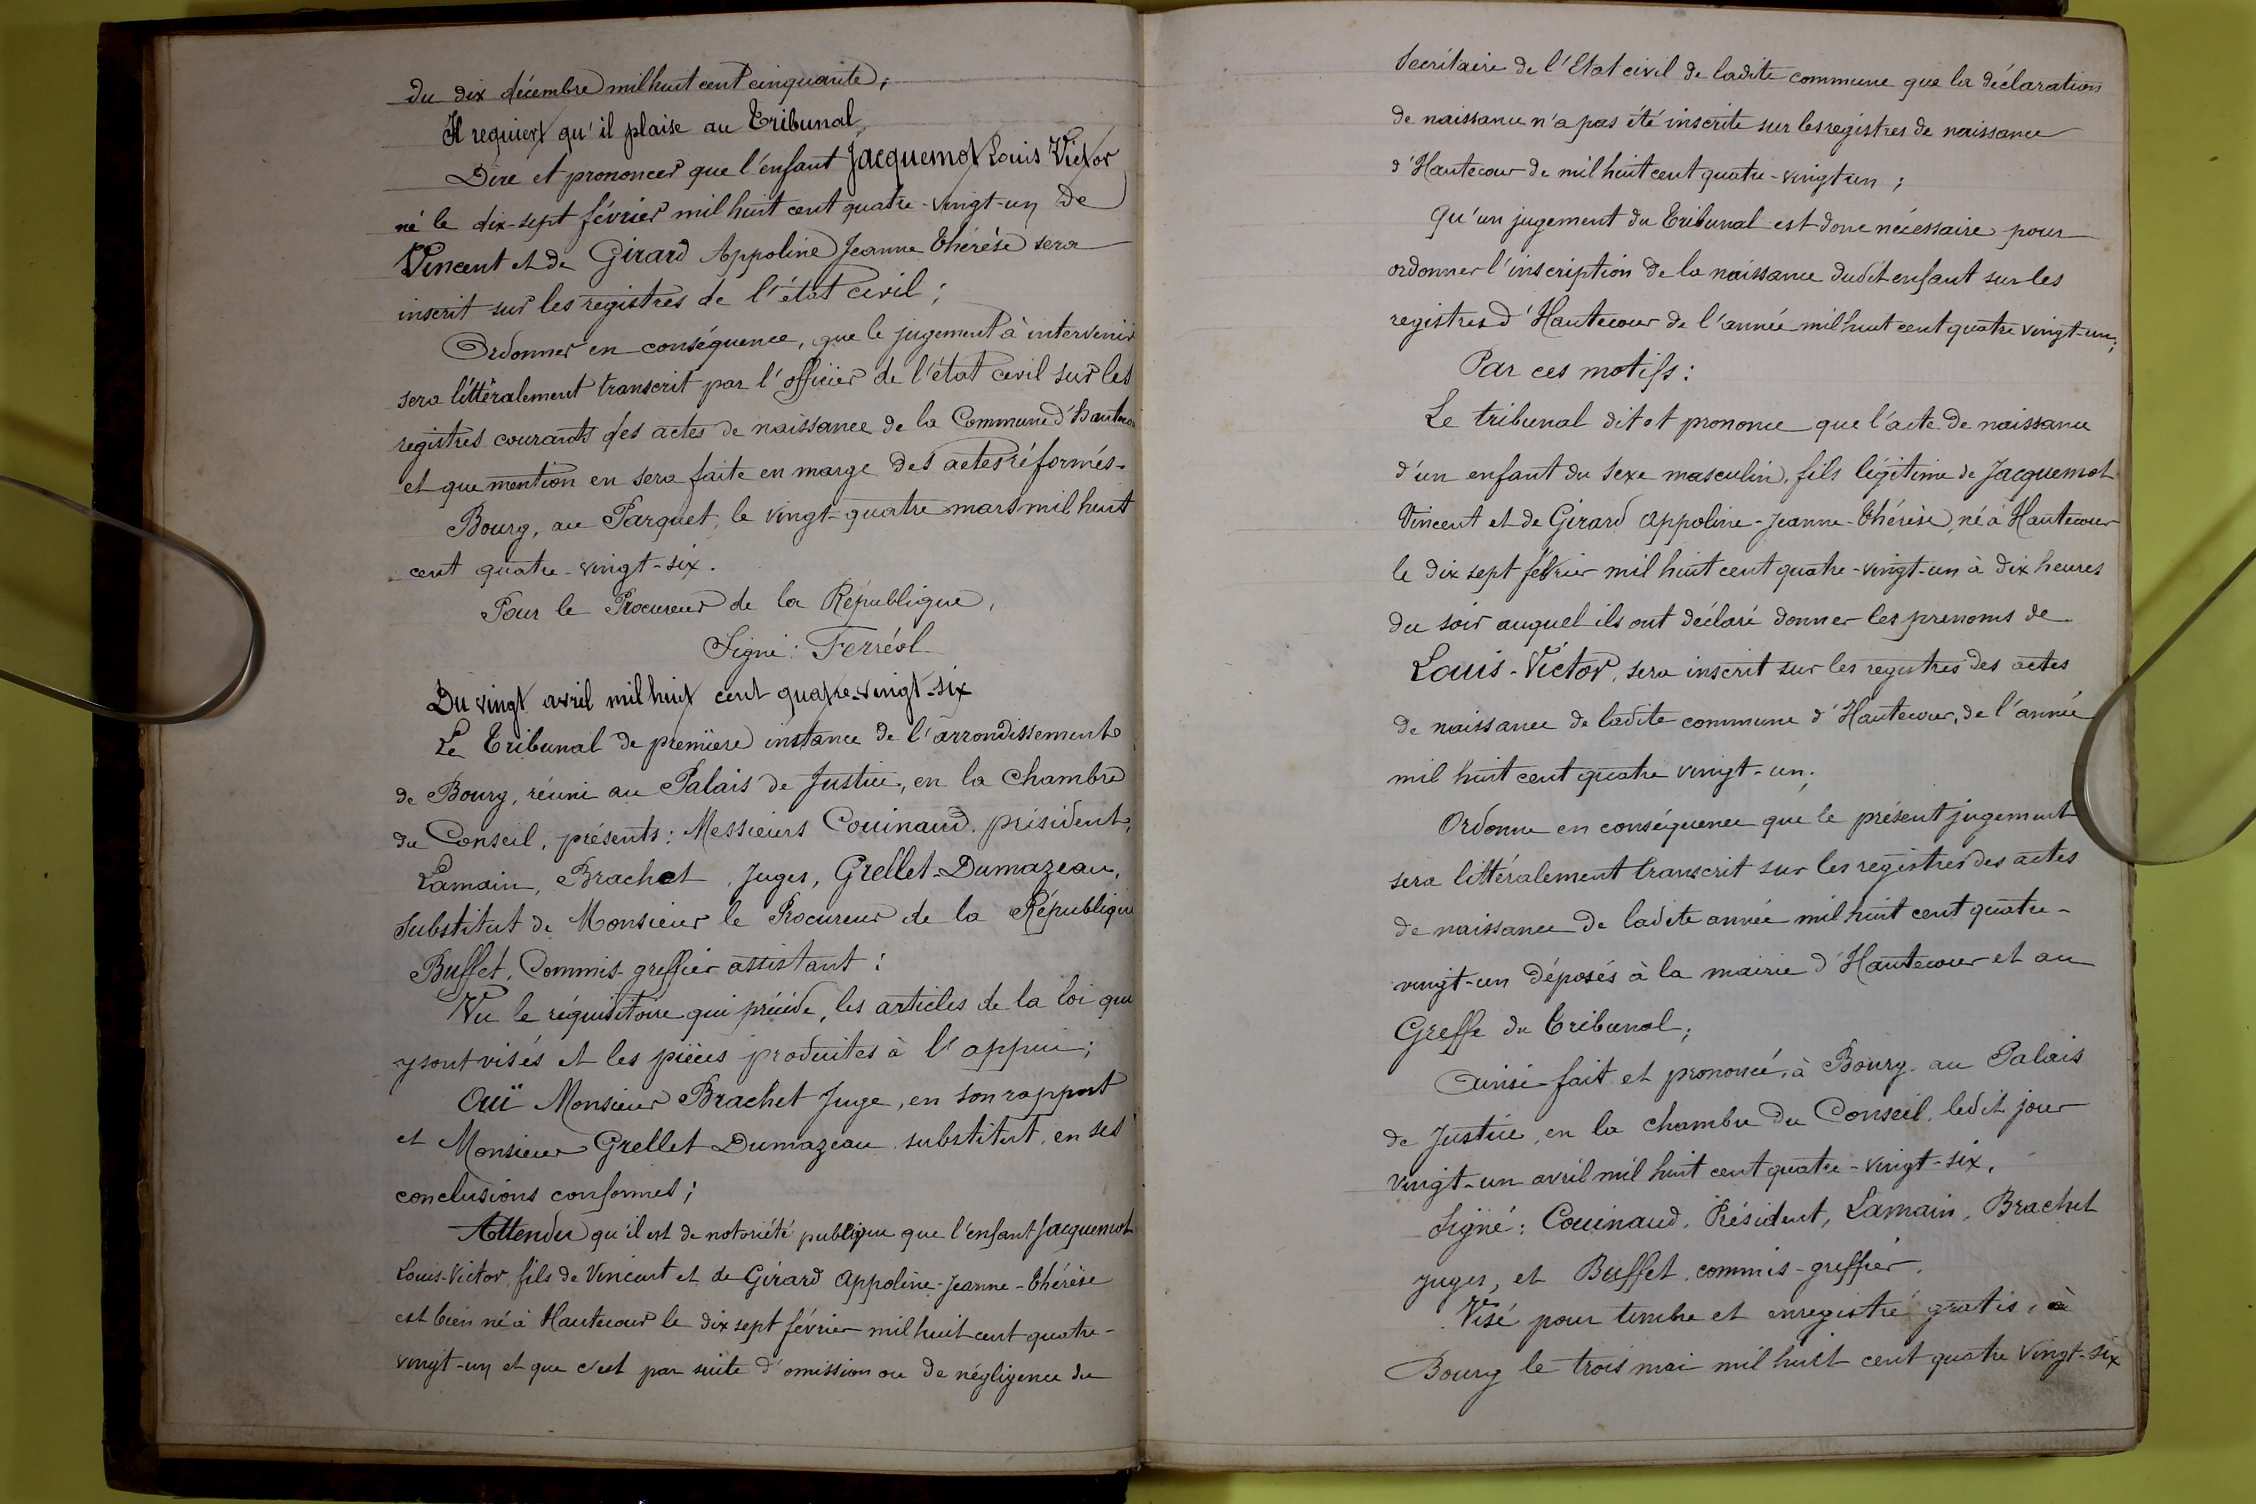 du dix décembre mil huit cent cinquante;
Il requiert qu'il plaise au Tribunal,
Dire et prononcer que l'enfant Jacquemot Louis Victor
né le dix-sept février mil huit cent quatre-vingt-un de
Vincent et de Girard Appoline Jeanne Thérèse sera
inscrit sur les registres de l'état civil;
Ordonner en conséquence, que le jugement à intervenir
sera littéralement transcrit par l'officier de l'état civil sur les
registres courants des actes de naissance de la Commune d'
et que mention en sera faite en marge des actes réformés.
Bourg, au Parquet, le vingt-quatre mars mil huit
cent quatre-vingt-six.
Pour le Procureur de la République,
Signé: Ferréol
Du vingt avril mil huit cent quatre-vingt-six
Le Tribunal de première instance de l'arrondissement
de Bourg, réuni au Palais de Justice, en la Chambre
du Conseil, présents: Messieurs Couinaud, président,
Lamain, Brachet, Juges, Grellet-Dumazeau,
Substitut de Monsieur le Procureur de la République
Buffet, Commis-greffier assistant:
Vu le réquisitoire qui précède, les articles de la loi qui
y sont visés et les pièces produites à l'appui;
Ouï Monsieur Brachet Juge, en son rapport
et Monsieur Grellet Dumazeau substitut, en ses
conclusions conformes;
Attendu qu'il est de notoriété publique que l'enfant Jacquemot
Louis-Victor, fils de Vincent et de Girard Appoline-Jeanne-Thérèse
est bien né à Hautecour le dix sept février mil huit cent quatre-
vingt-un et que c'est par suite d'omission ou de négligence du
Secrétaire de l'Etat civil de ladite commune que la déclaration
de naissance n'a pas été inscrite sur les registres de naissance
d'Hautecour de mil huit cent quatre-vingt un;
Qu'un jugement du Tribunal est donc nécessaire pour
ordonner l'inscription de la naissance dudit enfant sur les
registres d'Hautecour de l'année mil huit cent quatre vingt-un;
Par ces motifs:
Le tribunal dit et prononce que l'acte de naissance
d'un enfant du sexe masculin, fils légitime de Jacquemot
Vincent et de Girard Appoline-Jeanne-Thérèse, né à Hautecour
le dix sept février mil huit cent quatre-vingt-un à dix heures
du soir auquel ils ont déclaré donner les prenoms de
Louis-Victor, sera inscrit sur les registres des actes
de naissance de ladite commune d'Hautecour, de l'année
mil huit cent quatre vingt-un;
Ordonne en conséquence que le présent jugement
sera littéralement transcrit sur les registres des actes
de naissance de ladite année mil huit cent quatre-
vingt-un déposés à la mairie d'Hautecour et au
Greffe du Tribunal;
Ainsi fait et prononcé, à Bourg au Palais
de Justice, en la chambre du Conseil, ledit jour
vingt-un avril mil huit cent quatre-vingt-six.
Signé: Couinaud, Président, Lamain, Brachet
Juges, et Buffet, commis-greffier.
Visé pour timbre et enregistré gratis, à
Bourg le trois mai mil huit cent quatre vingt-six